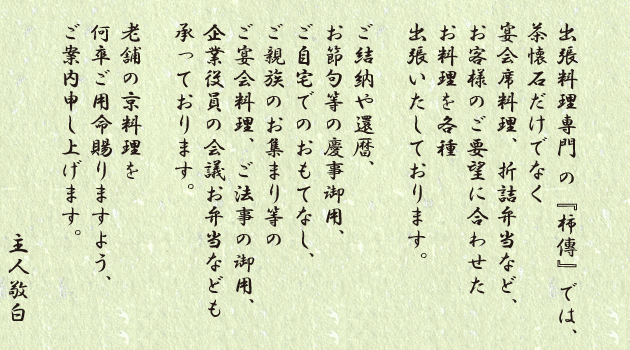 出張料理専門の『柿傳』では、
茶懐石だけでなく
宴会席料理、折詰弁当など、
お客様のご要望に合わせた
お料理を各種
出張いたしております。
ご結納や還暦、
お節句等の慶事御用、
ご自宅でのおもてなし、
ご親族のお集まり等の
ご宴会料理、ご法事の御用、
企業役員の会議お弁当なども
承っております。
老舗の京料理を
何卒ご用命賜りますよう、
ご案内申し上げます。
主人敬白